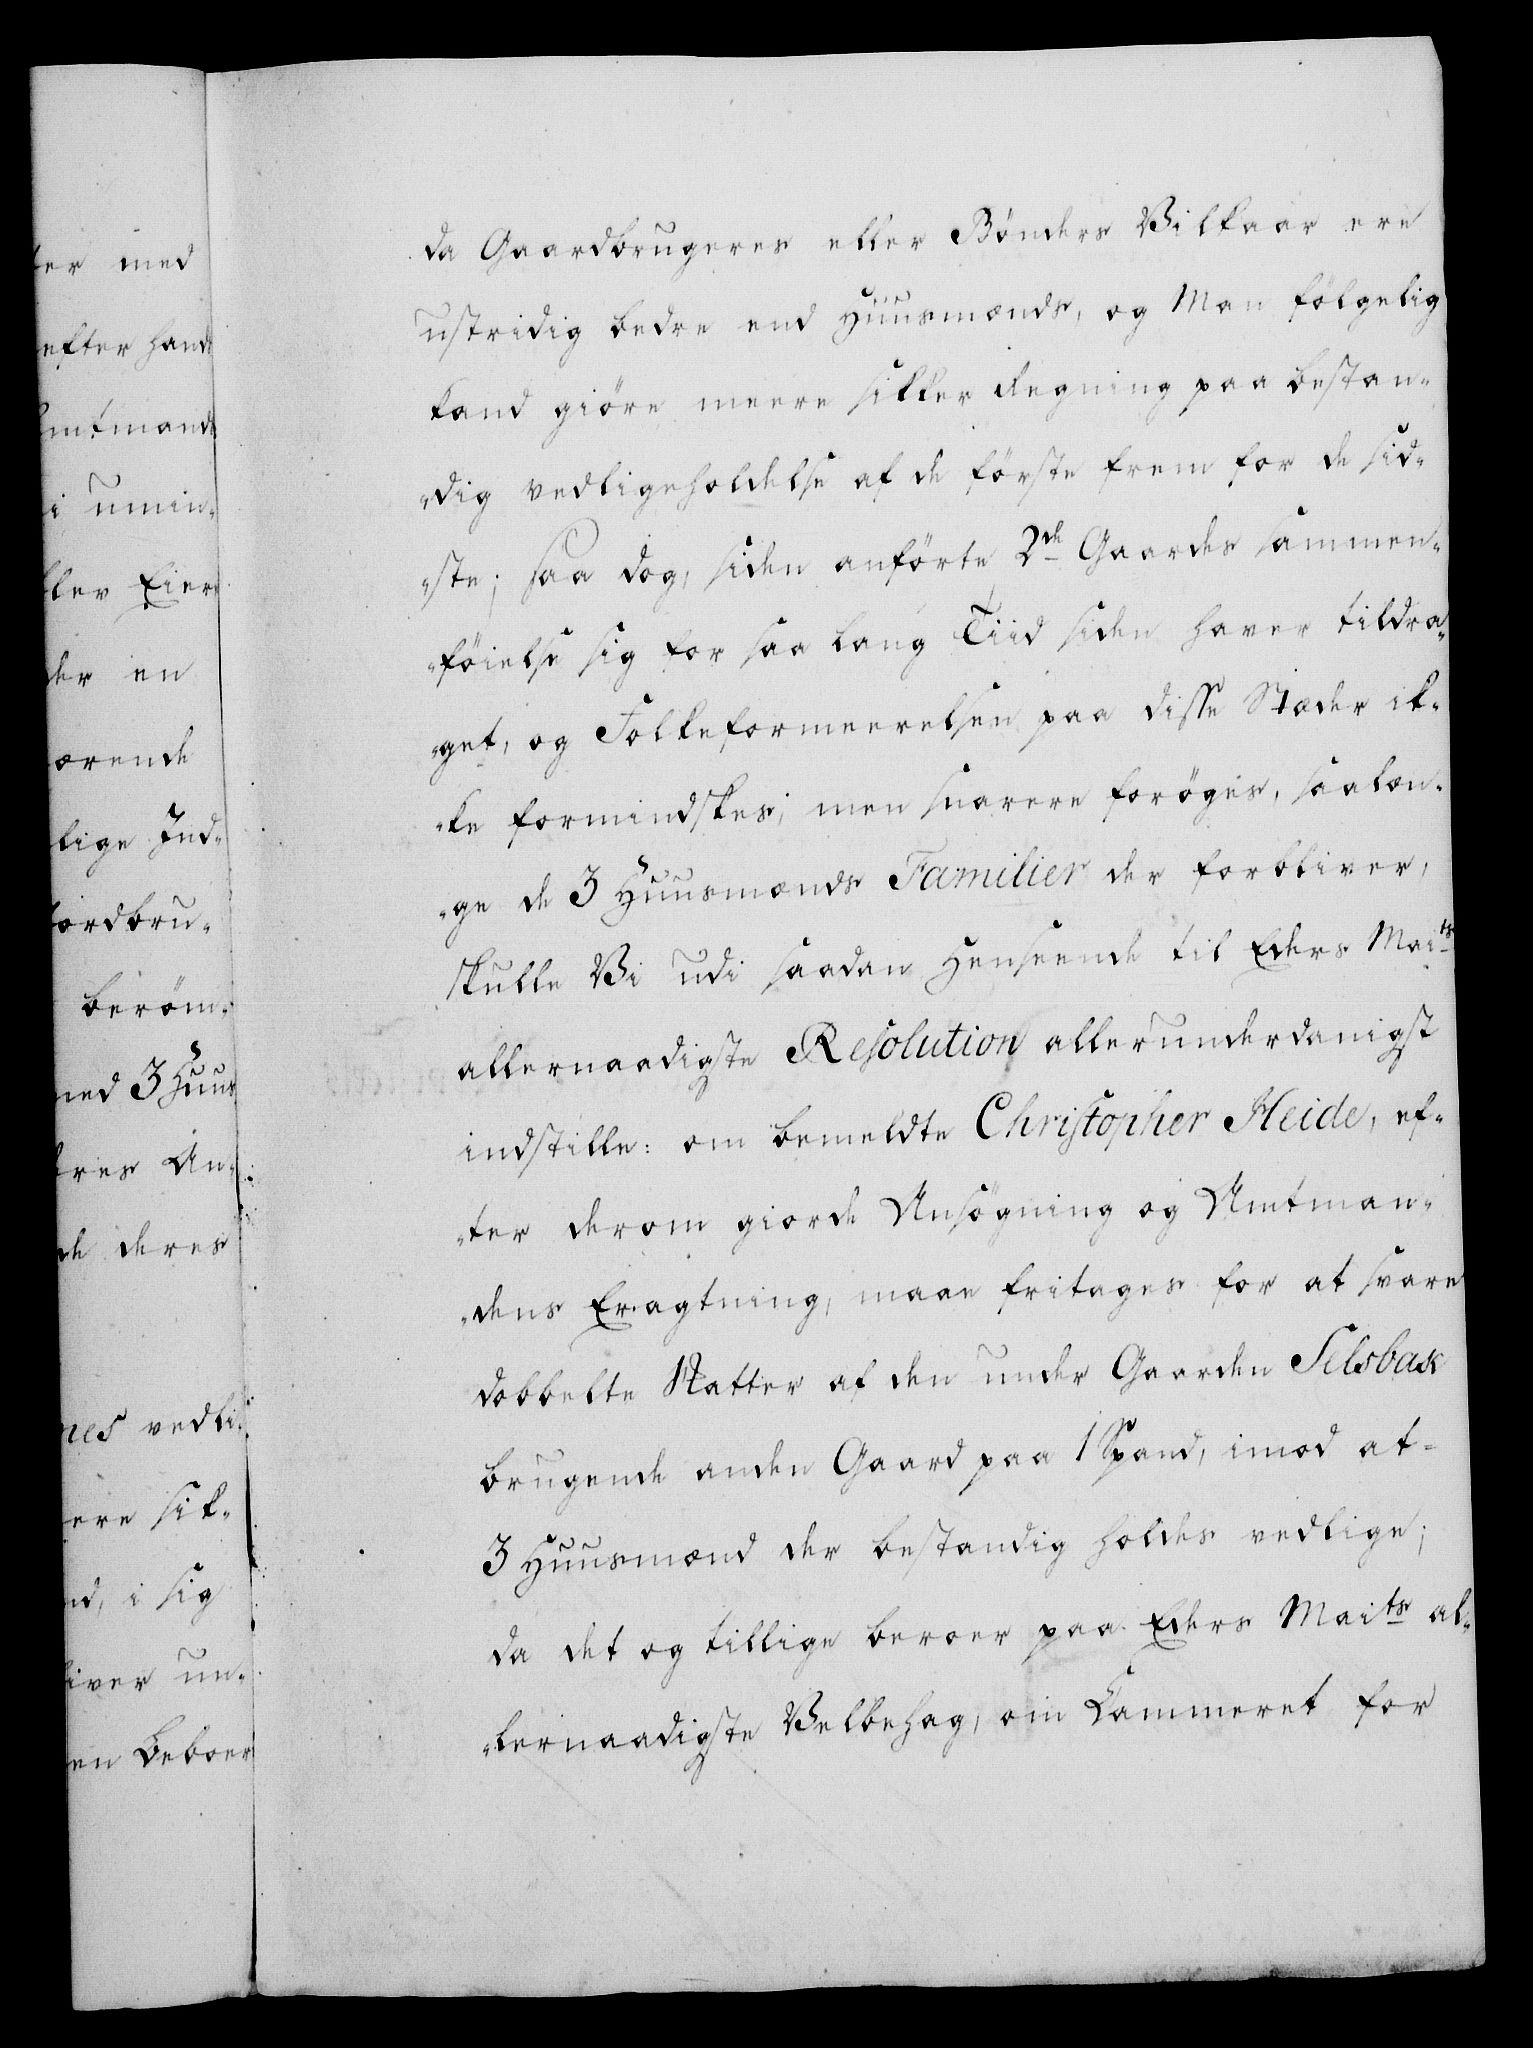 ter med
efter hand
Amtmand
i umin-
blev Eier
der en
ørende
lige Ind-
Jordbru-
berøm-
med 3 Huus
deres An-
de deres
nes vedli-
ere sik-
nd, i sig
iver un-
en Beboer
da Gaardbrugeres eller Bönders Vilkaar ere
ustridig bedre end Huusmænds, og Man fölgelig
kand giöre meere sikker Regning paa bestan-
-dig vedligeholdelse af de förste frem for de sid-
-ste; saa dog, siden anförte 2de Gaardes sammen-
-föielse sig for saa lang Tiid siden haver tildra-
-get, og Folkeformeerelsen paa disse Stæder ik-
-ke formindskes, men snarere foröges, saalæn-
-ge de 3 Huusmænds Familier der forbliver,
skulle Vi udi saadan Henseende til Eders Maits
allernaadigste Resolution allerunderdanigst
indstille: om bemeldte Christopher Heide, ef-
-ter derom giorde Ansögning og Amtman-
-dens Eragtning, maae fritages for at svare
dobbelte Skatter af den under Gaarden Selsbak
brugende anden Gaard paa 1 Spand, imod at-
3 Huusmænd der bestandig holdes vedlige;
da det og tillige beroer paa Eders Maits al-
-lernaadigste Velbehag, om Kammeret for